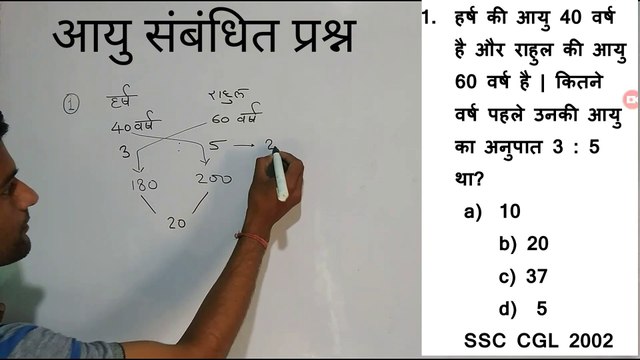 आयु संबंधित प्रश्न
① हर्ष राहुल
40 वर्ष 60 वर्ष
3 : 5 → 2
180 200
20
1. हर्ष की आयु 40 वर्ष
है और राहुल की आयु
60 वर्ष है | कितने
वर्ष पहले उनकी आयु
का अनुपात 3 : 5
था?
a) 10
b) 20
c) 37
d) 5
SSC CGL 2002